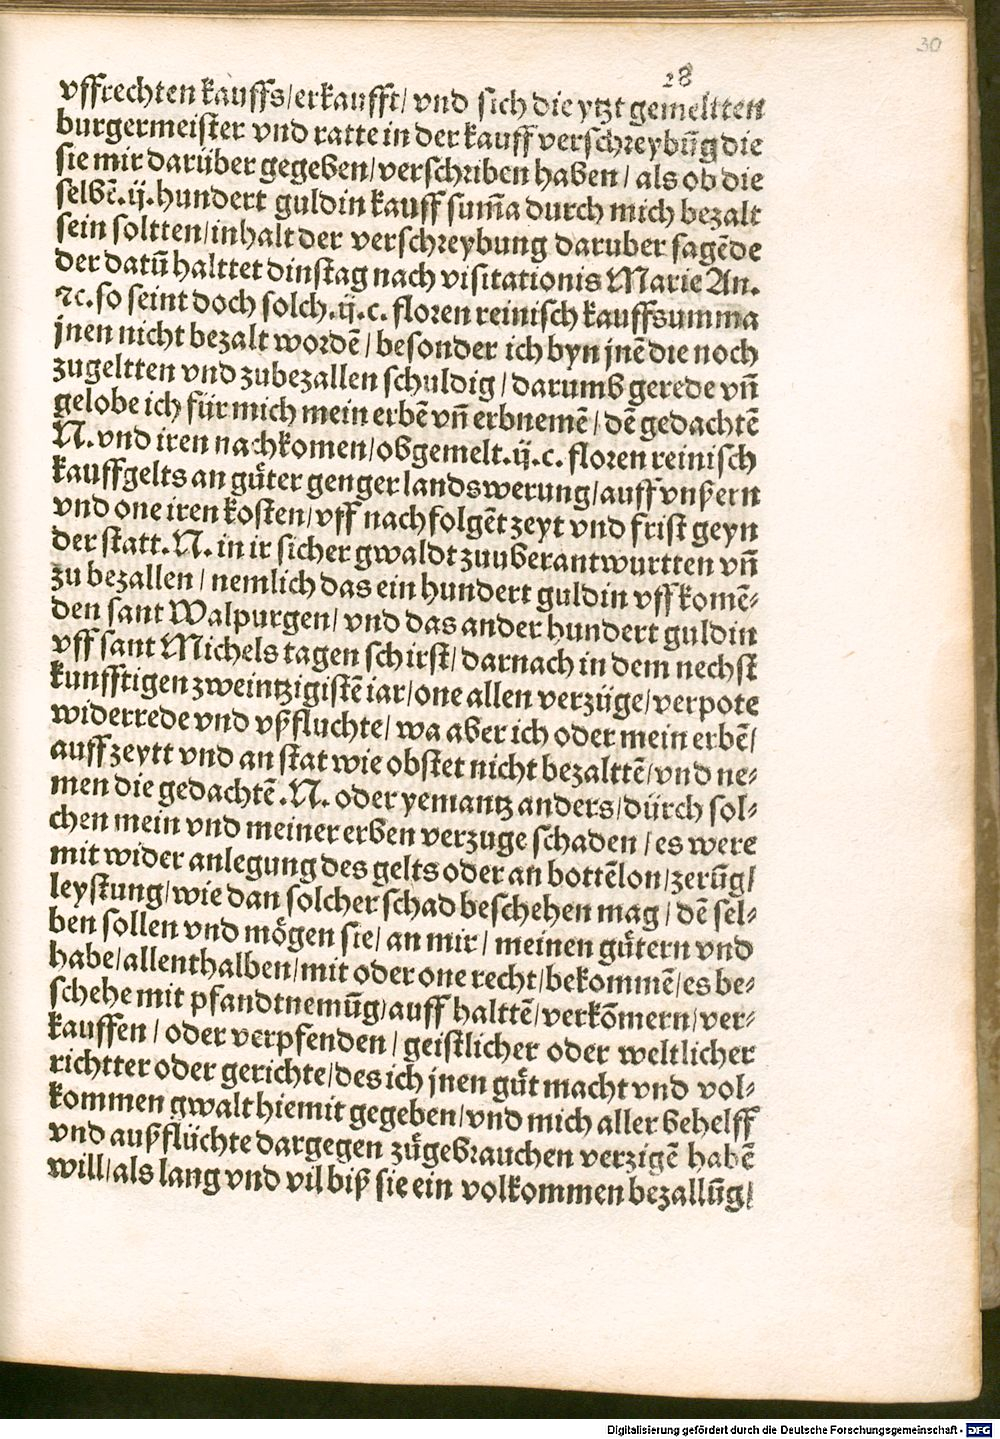 30
28
vffrechten kauffs/erkaufft/ vnd sich die ytzt gemeltten
burgermeister vnd ratte in der kauff verschreybūg die
sie mir darüber gegeben/verschriben haben/ als ob die
selbē.ij.hundert guldin kauff sum̄a durch mich bezalt
sein soltten/inhalt der verschreybung daruber sagēde
der datū halttet dinstag nach visitationis Marie An.
⁊c. so seint doch solch.ij.c. floren reinisch kauffsumma
jnen nicht bezalt wordē/ besonder ich byn jnē die noch
zugeltten vnd zubezallen schuldig/ darumb gerede vn̄
gelobe ich für mich mein erbē vn̄ erbnemē/ dē gedachtē
N. vnd iren nachkomen/obgemelt.ij.c. floren reinisch
kauffgelts an gůter genger landswerung/auff vnßern
vnd one iren kosten/vff nachfolgēt zeyt vnd frist geyn
der statt. N. in ir sicher gwaldt zuuberantwurtten vn̄
zu bezallen/ nemlich das ein hundert guldin vff komē⸗
den sant Walpurgen/ vnd das ander hundert guldin
vff sant Michels tagen schirst/ darnach in dem nechst
kunfftigen zweintzigistē iar/one allen verzüge/verpote
widerrede vnd vßfluchte/ wa aber ich oder mein erbē/
auff zeytt vnd an stat wie obstet nicht bezalttē/vnd ne⸗
men die gedachtē.N. oder yemantz anders/dürch sol⸗
chen mein vnd meiner erben verzuge schaden/ es were
mit wider anlegung des gelts oder an bottēlon/zerūg/
leystung/wie dan solcher schad beschehen mag/ dē sel⸗
ben sollen vnd mögen sie/ an mir/ meinen gůtern vnd
habe/allenthalben/mit oder one recht/bekommē/es be⸗
schehe mit pfandtnemūg/auff halttē/verkōmern/ver⸗
kauffen/ oder verpfenden/ geistlicher oder weltlicher
richtter oder gerichte/des ich jnen gůt macht vnd vol⸗
kommen gwalt hiemit gegeben/vnd mich aller behelff
vnd außflüchte dargegen zůgebrauchen verzigē habē
will/als lang vnd vil biß sie ein volkommen bezallūg/
Digitalisierung gefördert durch die Deutsche Forschungsgemeinschaft - DFG